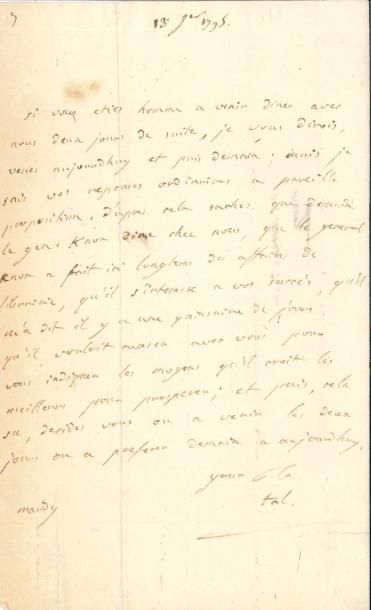 13 Jer 1795.
si vous eties homme a venir diner avec
nous deux jours de suite, je vous dirois,
venes aujourdhuy et puis demain; mais je
sais vos reponses ordinaires a pareille
proposition, d'apres cela saches que demain
le gen. Knox dine chez nous, que le general
Knox a fait ici longtems des affaires de
librairie, qu'il s'interesse a vos succès, qu'il
m'a dit il y a une quinzaine de jours
qu'il vouloit causer avec vous pour
vous indiquer les moyens qu'il croit les
meilleurs pour prosperer; et puis, cela
su, decides vous ou a venir les deux
jours ou a preferer demain a aujourdhuy.
tal.
mardy